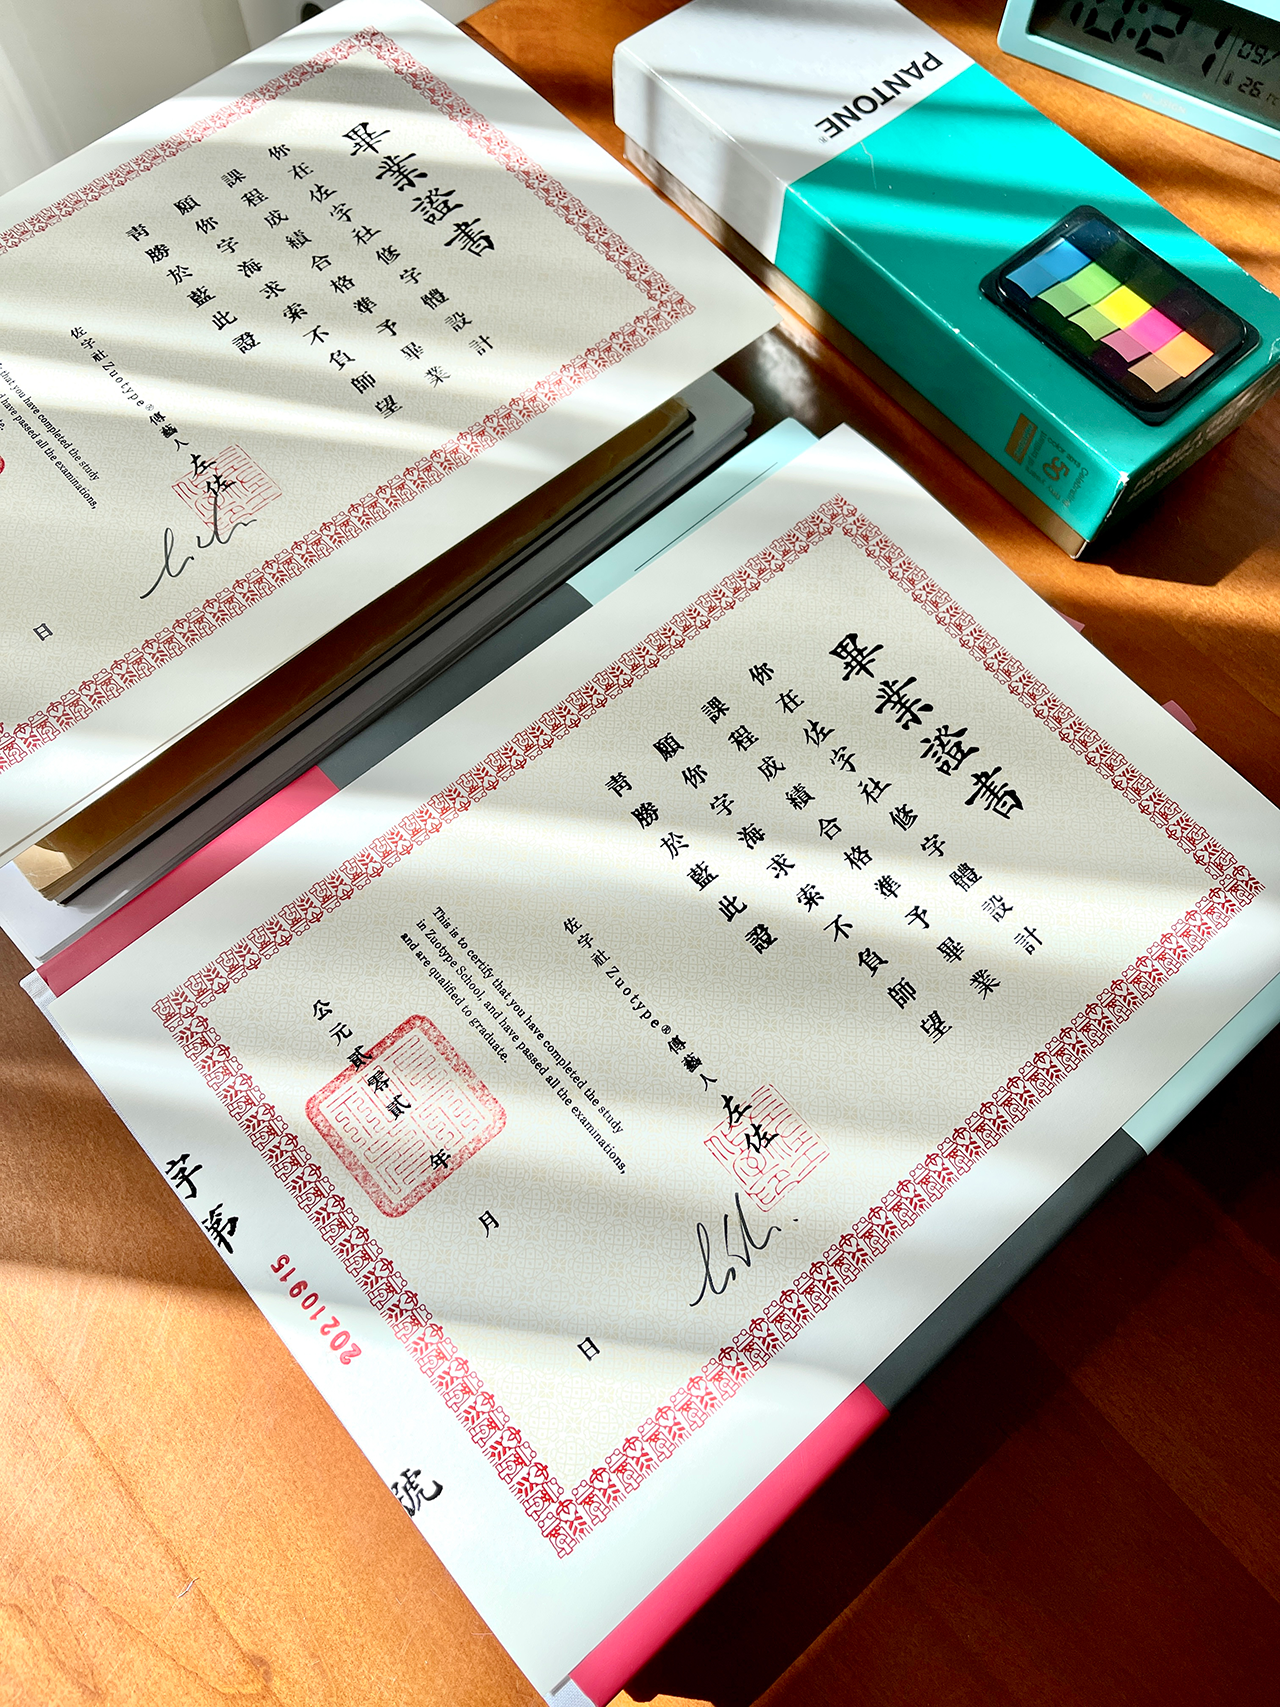 畢業證書
你在佐字社修字體設計
課程成績合格準予畢業
願你字海求索不負師望
青勝於藍此證
佐字社 Zuotype® 傳藝人 左佐
that you have completed the study
have passed all the examinations,
日
PANTONE®
10:27
09/
26.
50
畢業證書
你在佐字社修字體設計
課程成績合格準予畢業
願你字海求索不負師望
青勝於藍此證
佐字社 Zuotype® 傳藝人 左佐
This is to certify that you have completed the study
in Zuotype School, and have passed all the examinations,
and are qualified to graduate.
公元貳零貳 年 月 日
字第 20210915 號